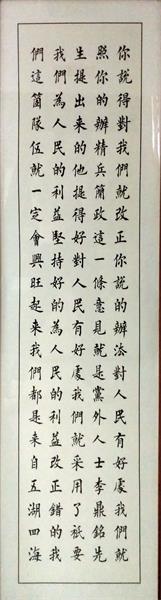 你說得對我們就改正你說的辦法對人民有好處我們就
照你的辦精兵簡政這一條意見就是黨外人士李鼎銘先
生提出來的他提得好對人民有好處我們就采用了祇要
我們為人民的利益堅持好的為人民的利益改正錯的我
們這箇隊伍就一定會興旺起來我們都是來自五湖四海